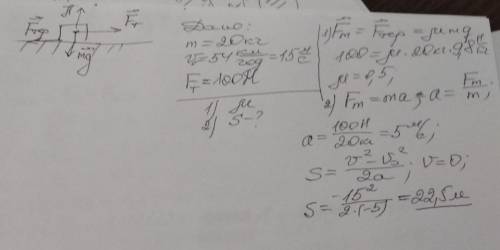 N⃗
F⃗тр F⃗т
mg⃗
Дано:
m = 20 кг
v⃗ = 54 км/год = 15 м/с
F⃗т = 100Н
1) μ
2) S-?
1) F⃗т = F⃗тр = μmg
100 = μ · 20кг · 9,8 Н/кг
μ = 0,5;
2) Fт = ma; a = Fт/m;
a = 100Н/20кг = 5 м/с;
S = (v² - v₀²)/2a ; v = 0;
S = -15²/2·(-5) = 22,5м